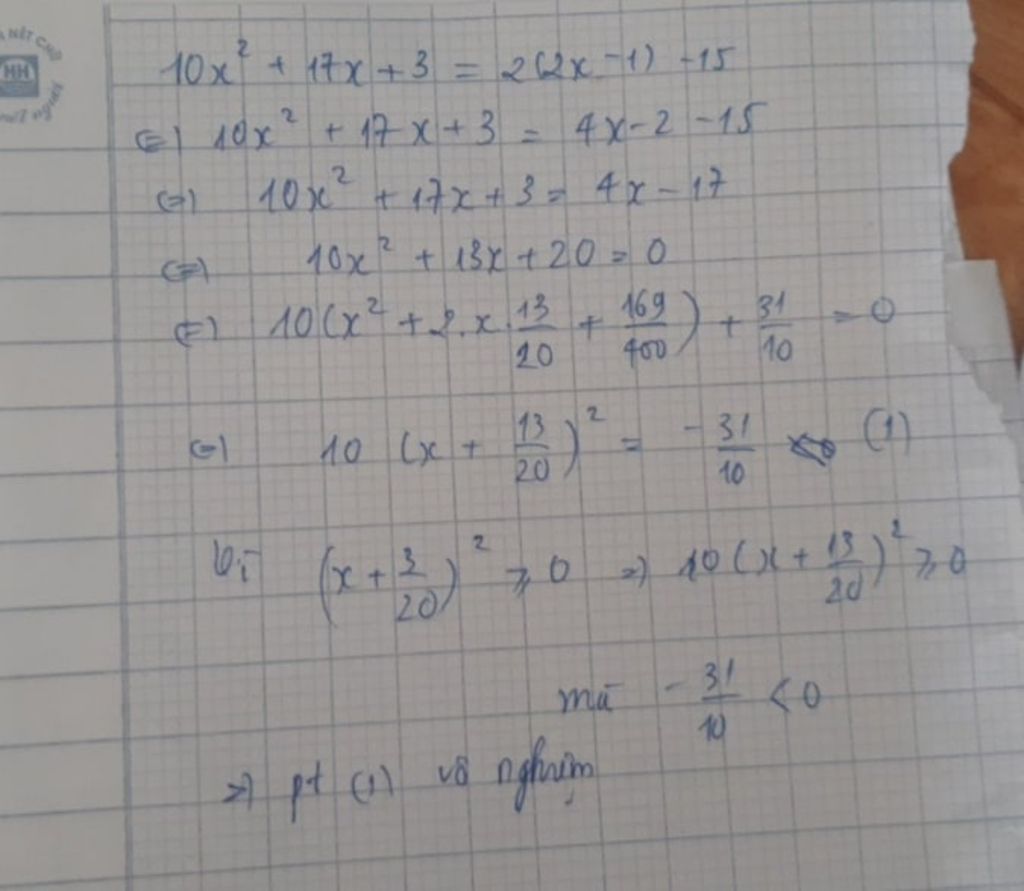 A NÉT CHỮ
HH
10x² + 17x + 3 = 2(2x - 1) - 15
⇔ 10x² + 17x + 3 = 4x - 2 - 15
⇔ 10x² + 17x + 3 = 4x - 17
⇔ 10x² + 13x + 20 = 0
⇔ 10(x² + 2.x 13/20 + 169/400) + 31/10 = 0
⇔ 10 (x + 13/20)² = - 31/10 (1)
Vì (x + 3/20)² ≥ 0 ⇒ 10(x + 13/20)² ≥ 0
mà - 31/10 < 0
⇒ pt (1) vô nghiệm